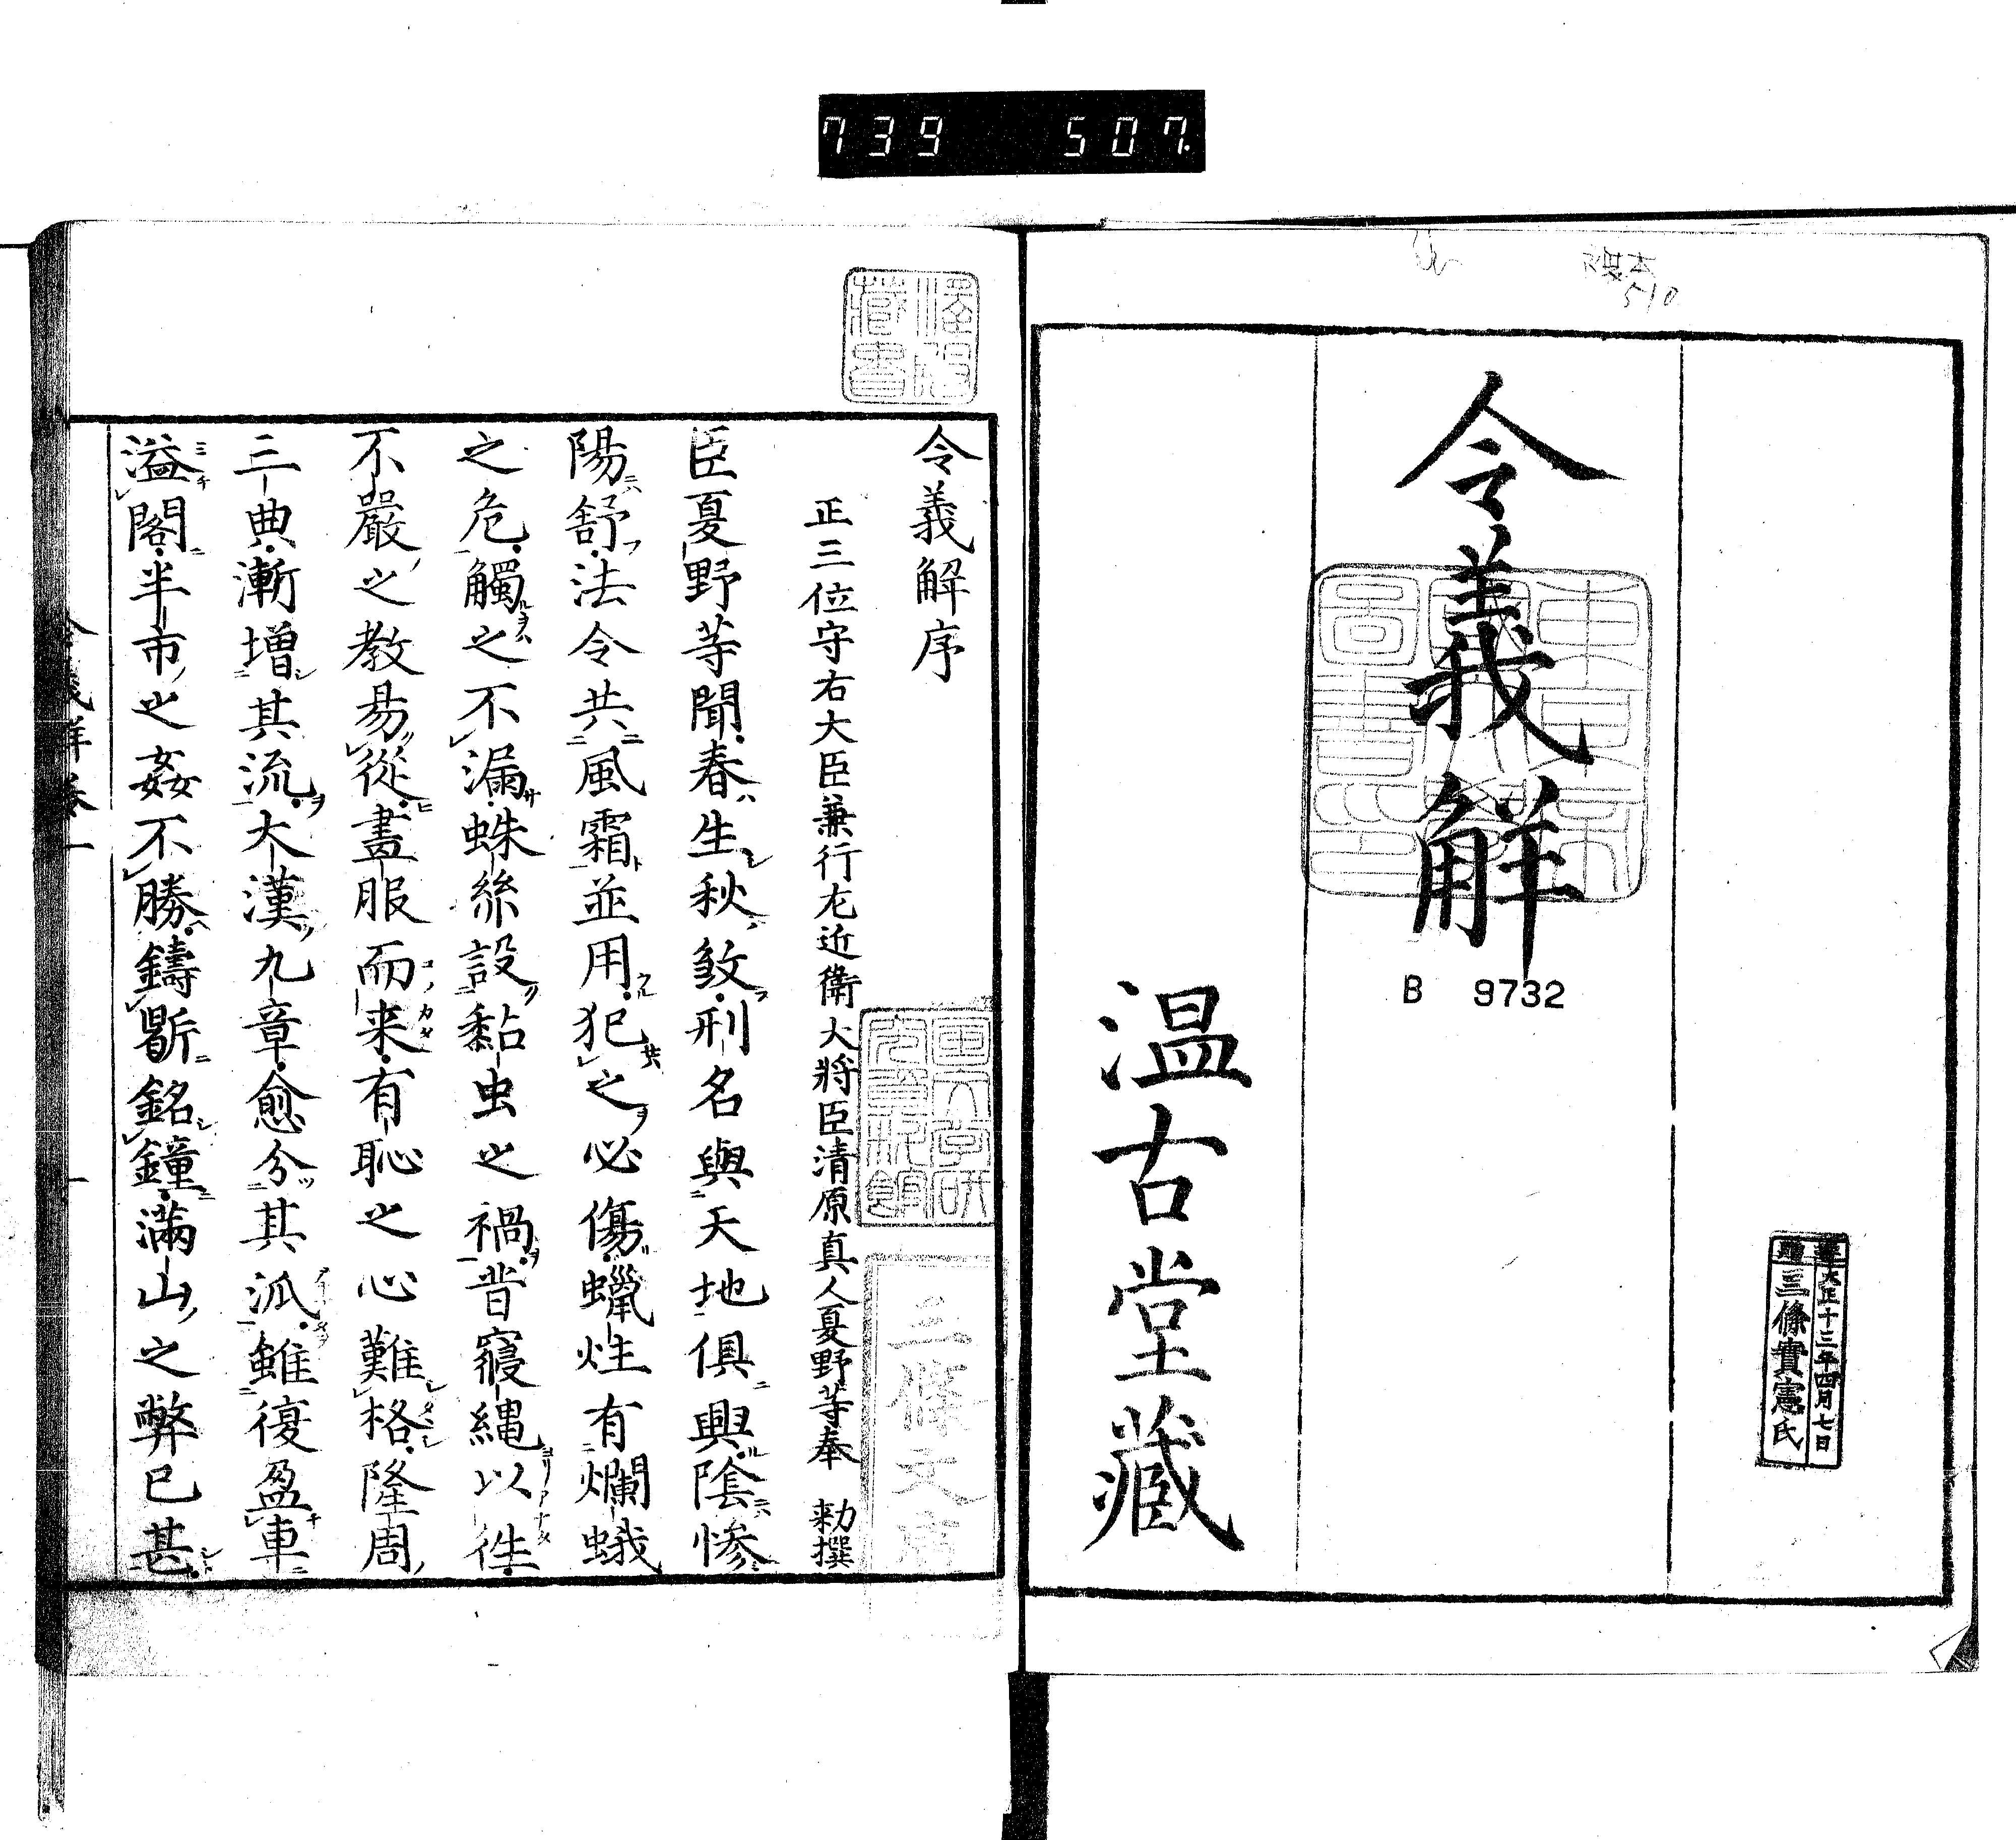 739 507.
510
令義解
B 9732
温古堂藏
東京帝
圖書印
大正十三年四月七日
三條實憲氏
藏書
令義解序
正三位守右大臣兼行左近衛大將臣清原真人夏野等奉 勅撰
臣夏野等聞春生秋殺刑名與天地俱興陰惨
陽舒法令共風霜並用犯之必傷蠟炷有爛蛾
之危觸之不漏蛛絲設黏虫之禍昔寢繩以往
不嚴之教易從畫服而来有恥之心難格隆周
三典漸增其流大漢九章愈分其派雖復盈車
溢閣半市之姦不勝鑄鼎銘鐘滿山之弊已甚
令義解卷一
一